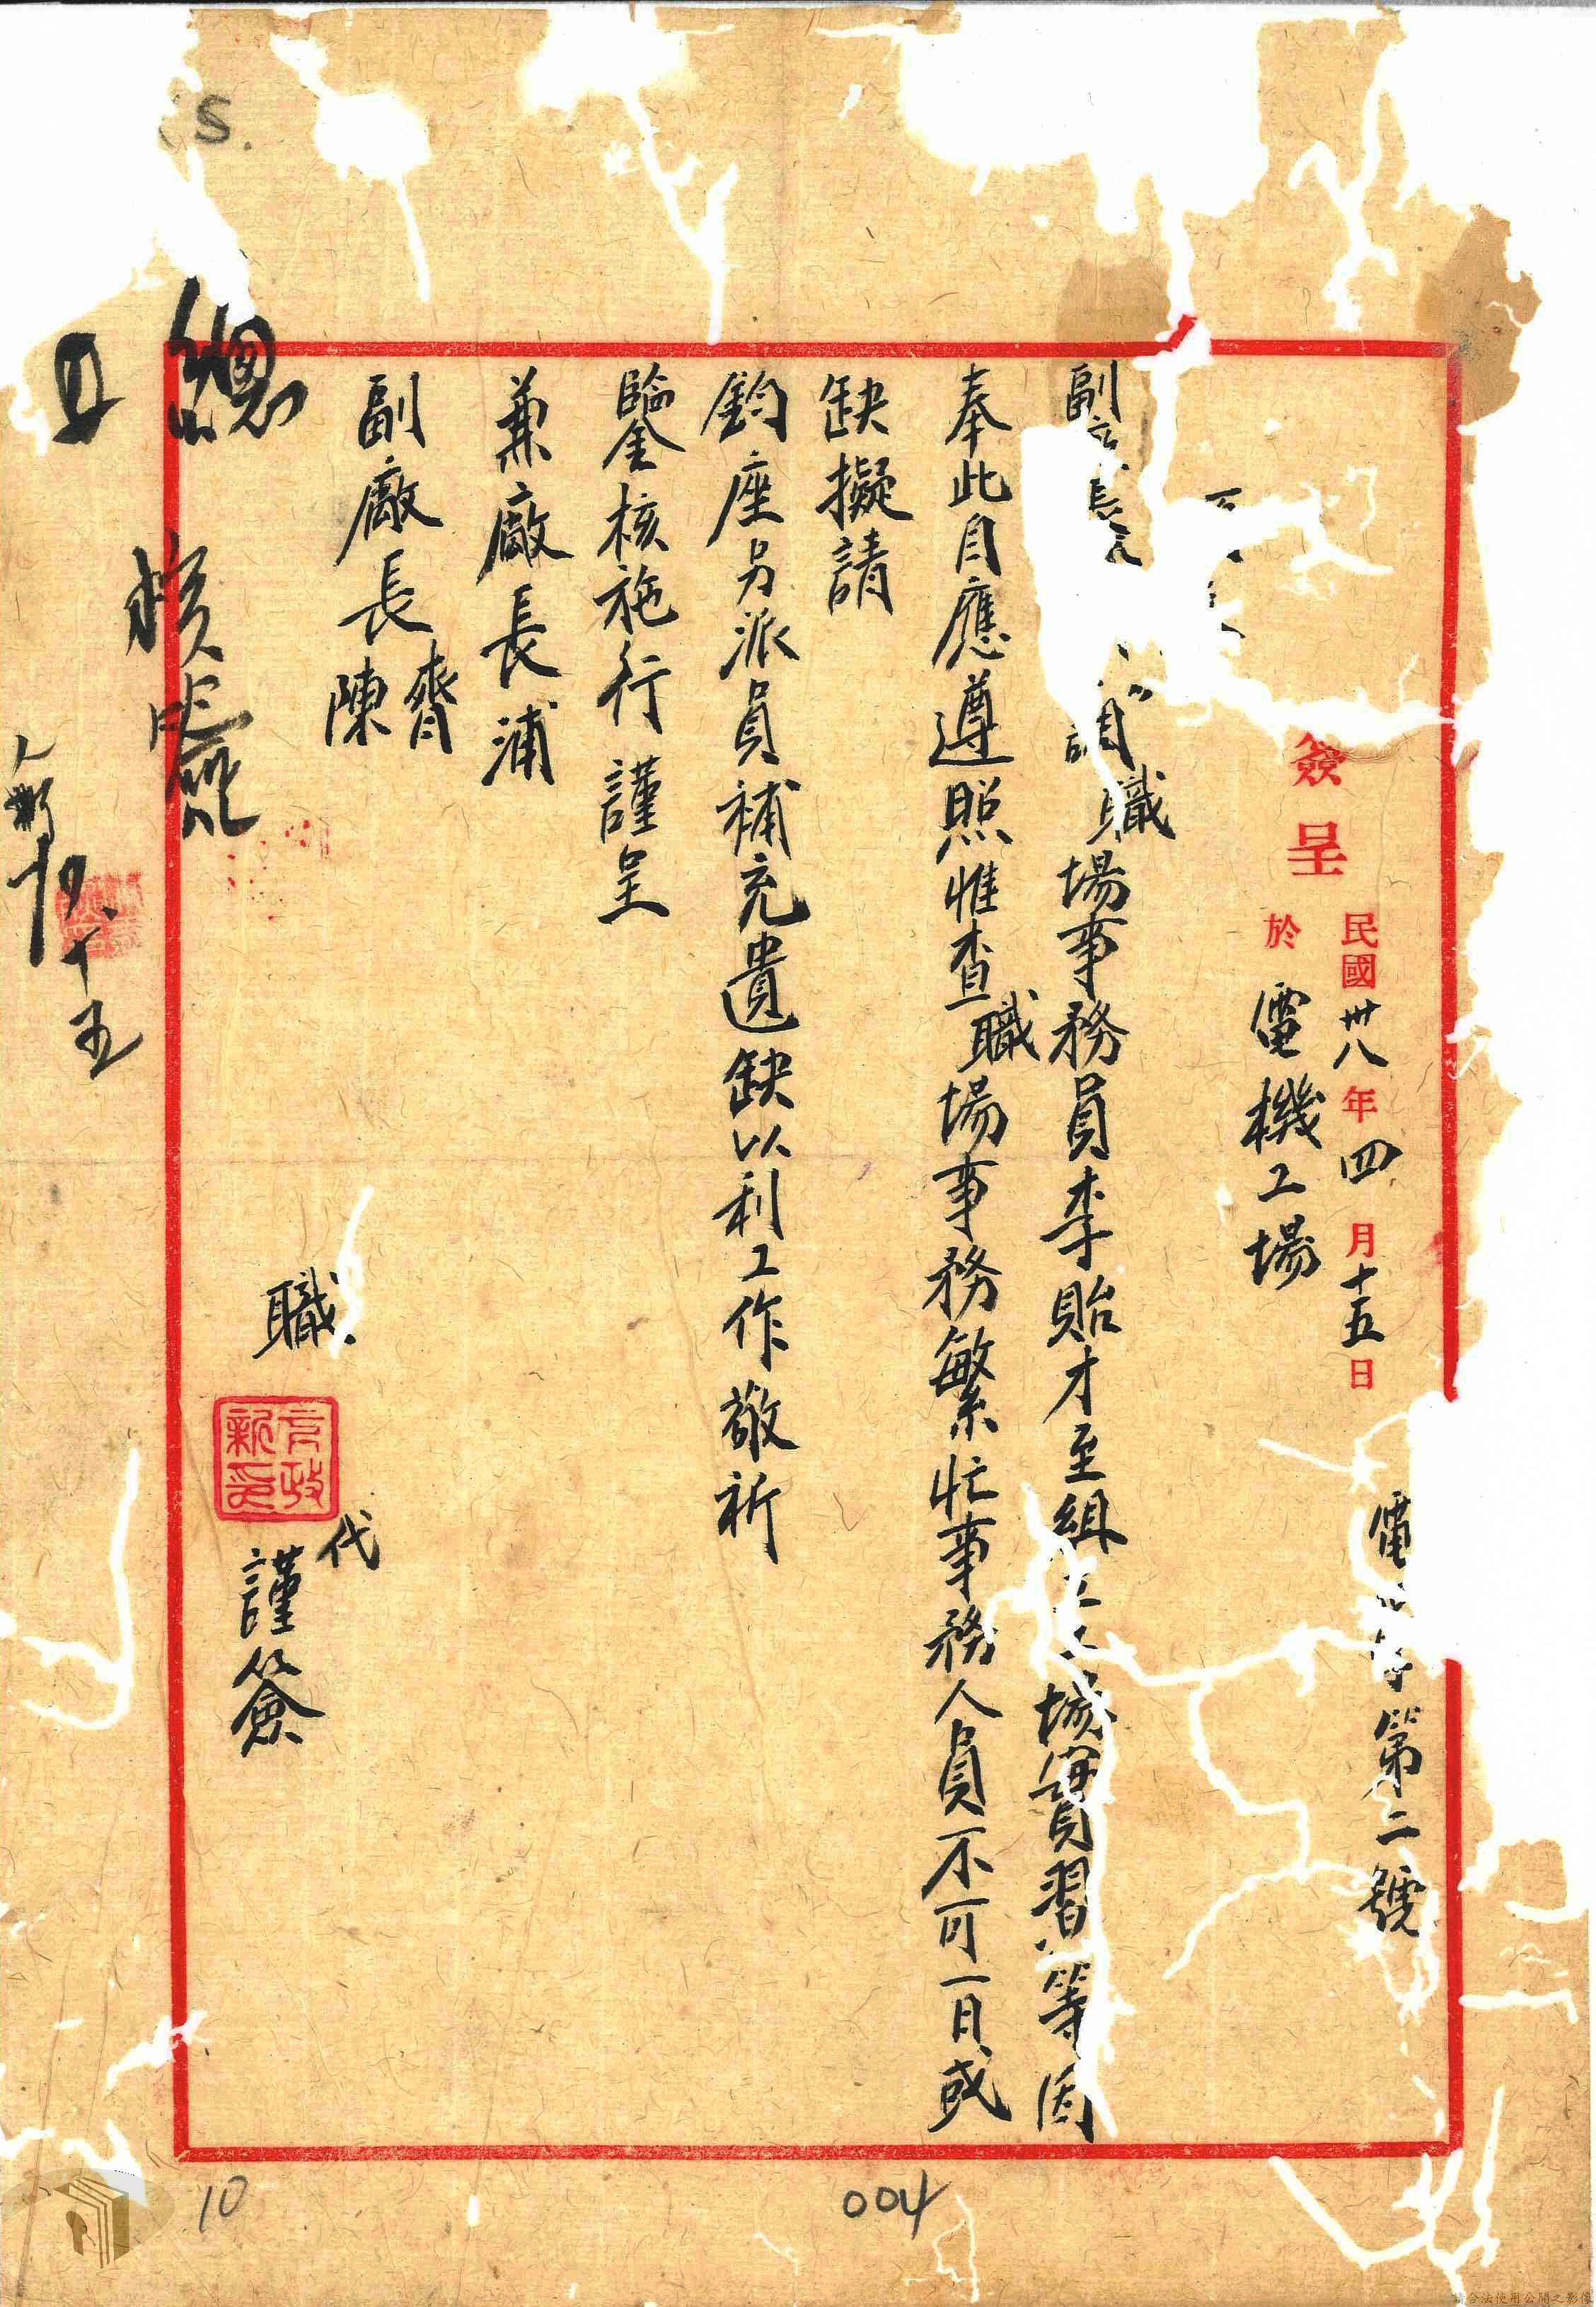 電 字第二號
簽呈
民國卅八年四月十五日
於電機工場
副 長 調職場事務員李貽才至組 工場實習等因
奉此自應遵照惟查職場事務繁忙事務人員不可一日或
缺擬請
鈞座另派員補充遺缺以利工作敬祈
鑒核施行謹呈
兼廠長浦
副廠長齊
陳
職
代
謹簽
總
核
十五
S.
10
004
請合法使用公開之影像